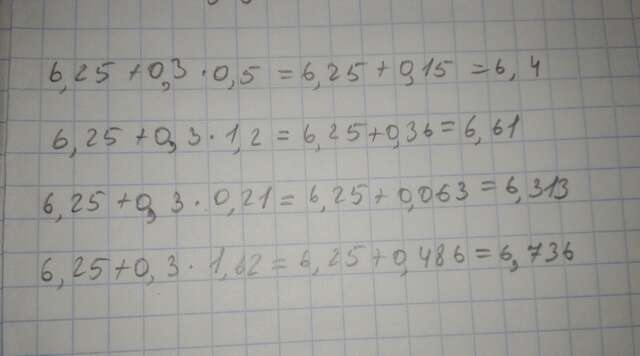 6,25 + 0,3 · 0,5 = 6,25 + 0,15 = 6,4
6,25 + 0,3 · 1,2 = 6,25 + 0,36 = 6,61
6,25 + 0,3 · 0,21 = 6,25 + 0,063 = 6,313
6,25 + 0,3 · 1,62 = 6,25 + 0,486 = 6,736